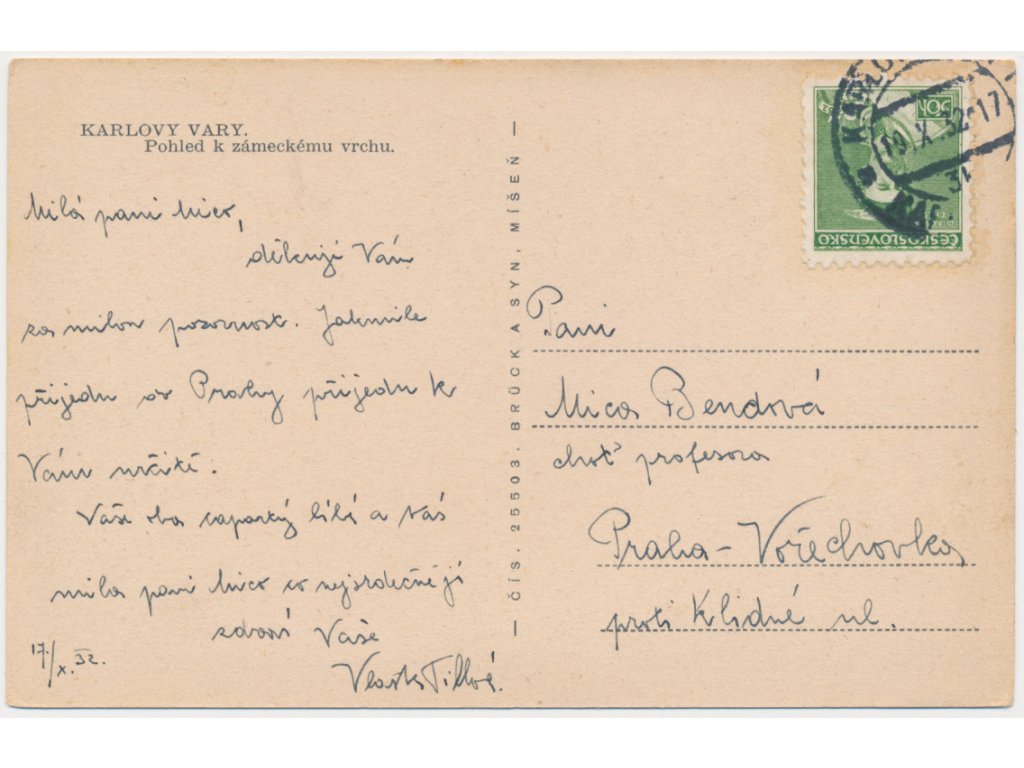 KARLOVY VARY.
Pohled k zámeckému vrchu.
Milá paní Mico,
děkuji Vám
za milou pozornost. Jakmile
přijedu do Prahy přijedu k
Vám určitě.
Vaše oba caparty líbá a Vás
milá paní Mico co nejsrdečněji
zdraví Vaše
Vlasta Tillová.
17./X. 32.
ČÍS. 25503. BRÜCK A SYN, MÍŠEŇ
ČESKOSLOVENSKO
50h
KARLOVY
19 X 32-17
Paní
Mica Bendová
choť profesora
Praha - Vořechovka
proti Klidné ul.